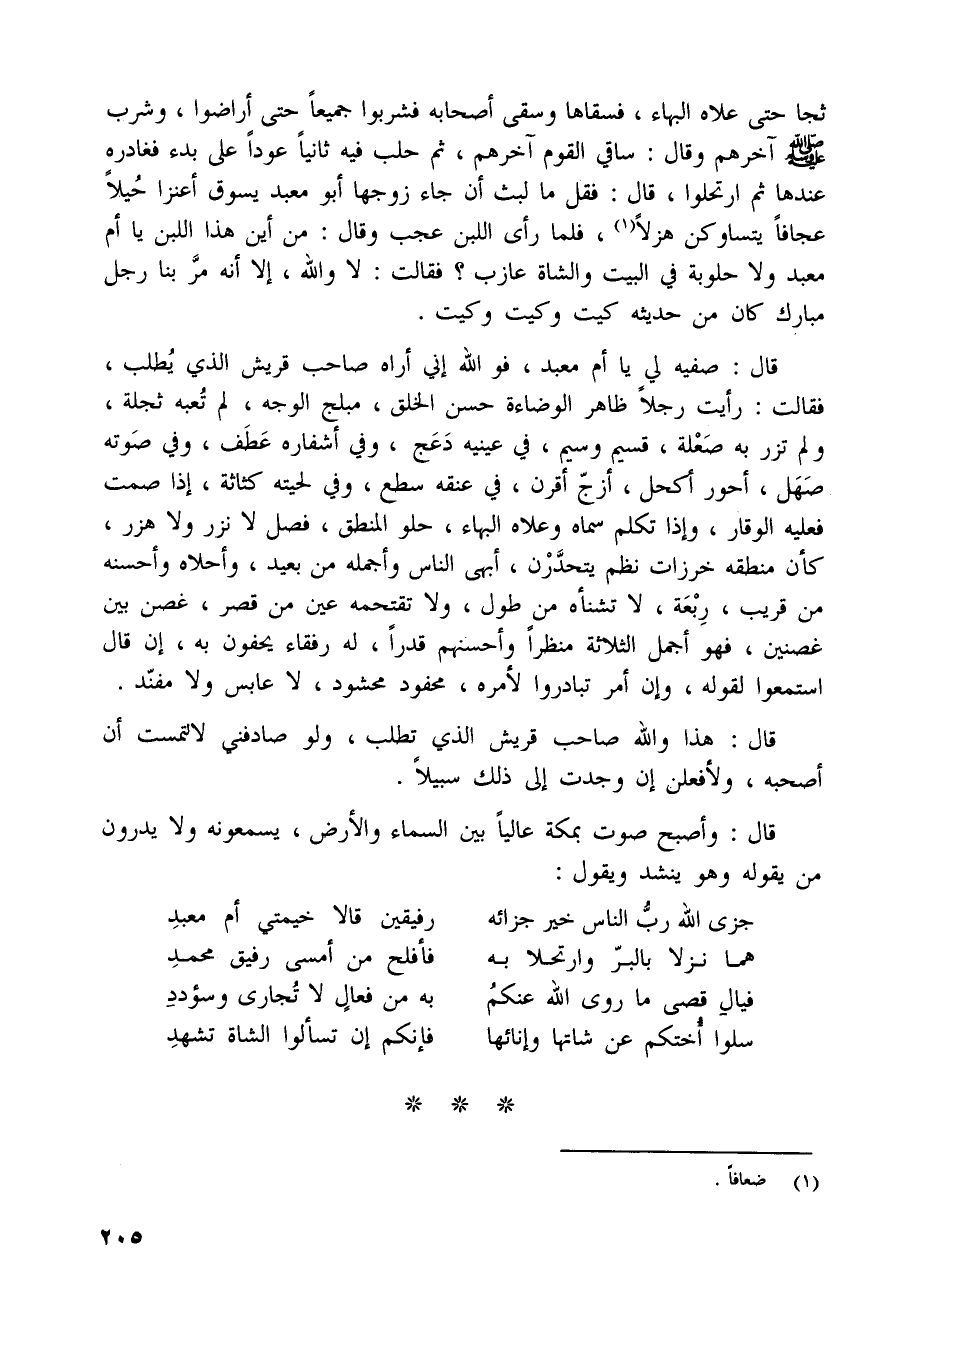 ثجا حتى علاه البهاء ، فسقاها وسقى أصحابه فشربوا جميعاً حتى أراضوا ، وشرب
ﷺ آخرهم وقال : ساقي القوم آخرهم ، ثم حلب فيه ثانياً عوداً على بدء فغادره
عندها ثم ارتحلوا ، قال : فقل ما لبث أن جاء زوجها أبو معبد يسوق أعنزا حُيلاً
عجافاً يتساوكن هزلاً(١) ، فلما رأى اللبن عجب وقال : من أين هذا اللبن يا أم
معبد ولا حلوبة في البيت والشاة عازب ؟ فقالت : لا والله ، إلا أنه مرَّ بنا رجل
مبارك كان من حديثه كيت وكيت وكيت .
قال : صفيه لي يا أم معبد ، فو الله إني أراه صاحب قريش الذي يُطلب ،
فقالت : رأيت رجلاً ظاهر الوضاءة حسن الخلق ، مبلج الوجه ، لم تُعبه ثجلة ،
ولم تزر به صَعْلة ، قسيم وسيم ، في عينيه دَعَج ، وفي أشفاره عَطَف ، وفي صَوته
صَهَل ، أحور أكحل ، أزجّ أقرن ، في عنقه سطع ، وفي لحيته كثاثة ، إذا صمت
فعليه الوقار ، وإذا تكلم سماه وعلاه البهاء ، حلو المنطق ، فصل لا نزر ولا هزر ،
كأن منطقه خرزات نظم يتحدَّرْن ، أبهى الناس وأجمله من بعيد ، وأحلاه وأحسنه
من قريب ، رِبْعَة ، لا تشنأه من طول ، ولا تقتحمه عين من قصر ، غصن بين
غصنين ، فهو أجمل الثلاثة منظراً وأحسنهم قدراً ، له رفقاء يحفون به ، إن قال
استمعوا لقوله ، وإن أمر تبادروا لأمره ، محفود محشود ، لا عابس ولا مفنّد .
قال : هذا والله صاحب قريش الذي تطلب ، ولو صادفني لالتمست أن
أصحبه ، ولأفعلن إن وجدت إلى ذلك سبيلاً .
قال : وأصبح صوت بمكة عالياً بين السماء والأرض ، يسمعونه ولا يدرون
من يقوله وهو ينشد ويقول :
جزى الله ربُّ الناس خير جزائه رفيقين قالا خيمتي أم معبدِ
هما نزلا بالبرّ وارتحلا به فأفلح من أمسى رفيق محمدِ
فيالِ قصى ما روى الله عنكمُ به من فعالٍ لا تُجارى وسؤددِ
سلوا أُختكم عن شاتها وإنائها فإنكم إن تسألوا الشاة تشهدِ
* * *
(١) ضعافاً .
٢٠٥